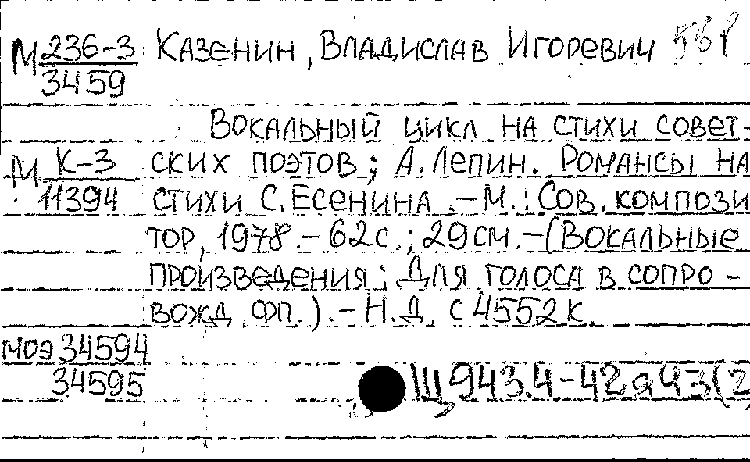 М 236-3 Казенин, Владислав Игоревич
3459
Вокальный цикл на стихи совет-
М К-3 ских поэтов; А. Лепин. Романсы на
11394 стихи С. Есенина. – М.: Сов. компози
тор, 1978. – 62 с.; 29 см. – (Вокальные
произведения: Для голоса в сопро-
вожд. фп.). – Н.Д. с 4552 к.
МОЭ 34594
34595
Щ943.4-42я43(2